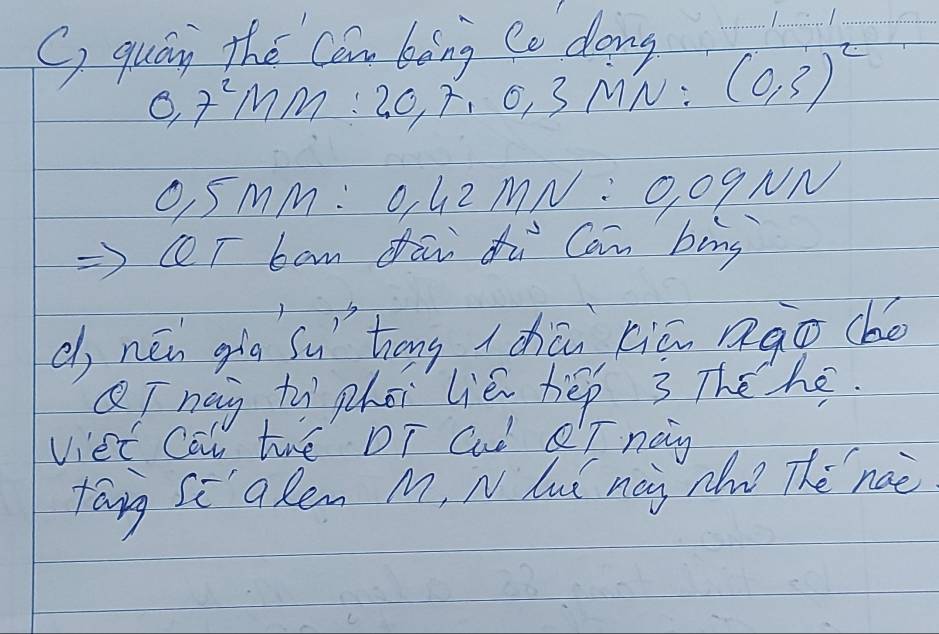 C, quần thể cân bằng có dạng
0,7²MM : 2.0,7. 0,3 MN : (0,3)²
0,5MM : 0,42 MN : 0,09NN
=> QT ban đầu đã cân bằng
d, nếu giả sử trong 1 điều kiện nào đó
QT này tự phối liên tiếp 3 Thế hệ.
Viết cấu trúc DT của QT này
tầng số alen M, N lúc này như Thế nào.